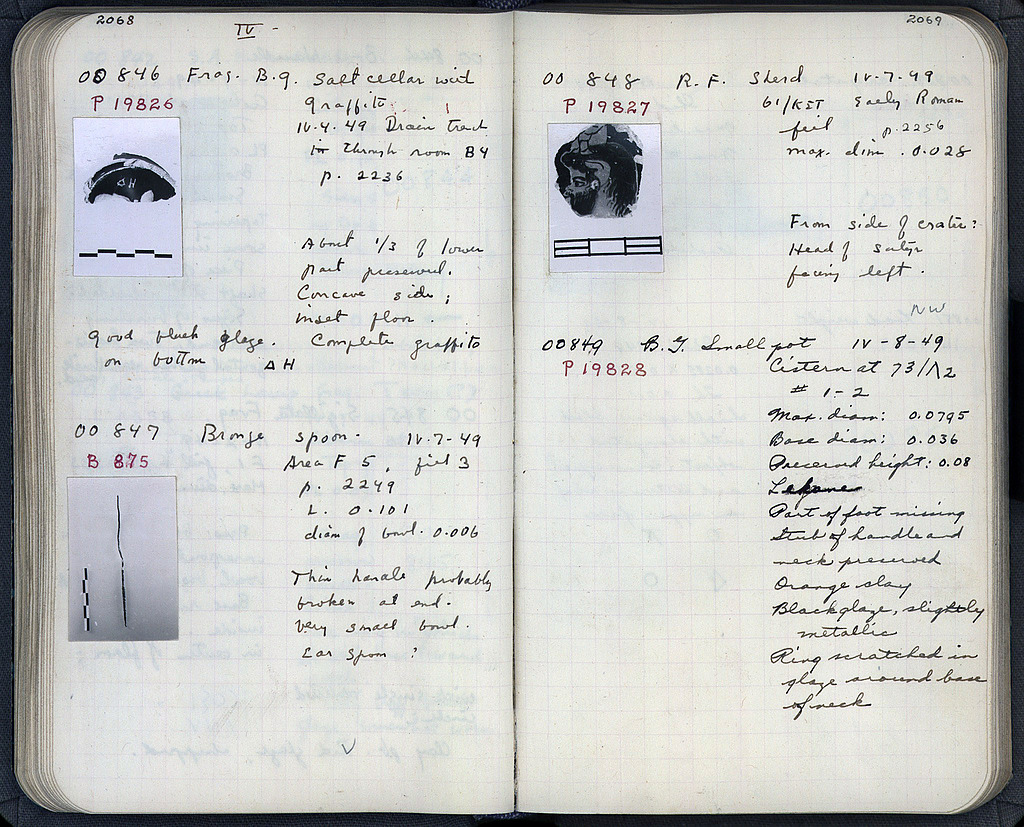 2068
IV -
OO 846 Frag. B.g. Saltcellar with
P 19826
graffito. 1
IV-4-49 Drain tract
in through room B4
p. 2236
ΔH
About 1/3 of lower
part preserved.
Concave side;
inset floor.
Good black glaze. Complete graffito
on bottom ΔH
OO 847 Bronze spoon. IV-7-49
B 875
Area F 5, fill 3
p. 2249
L. 0.101
diam of bowl. 0.006
Thin handle probably
broken at end.
Very small bowl.
Ear spoon?
V
2069
OO 848 R.F. Sherd IV-7-49
P 19827
61/ΚΣΤ Early Roman
fill p. 2256
max. dim. 0.028
From side of crater:
Head of satyr
facing left.
NW
OO849 B.G. Small pot IV-8-49
P 19828
Cistern at 73/Λ2
# 1-2
Max. diam: 0.0795
Base diam: 0.036
Preserved height: 0.08
Part of foot missing
Stub of handle and
neck preserved
Orange clay
Black glaze, slightly
metallic
Ring scratched in
glaze around base
of neck